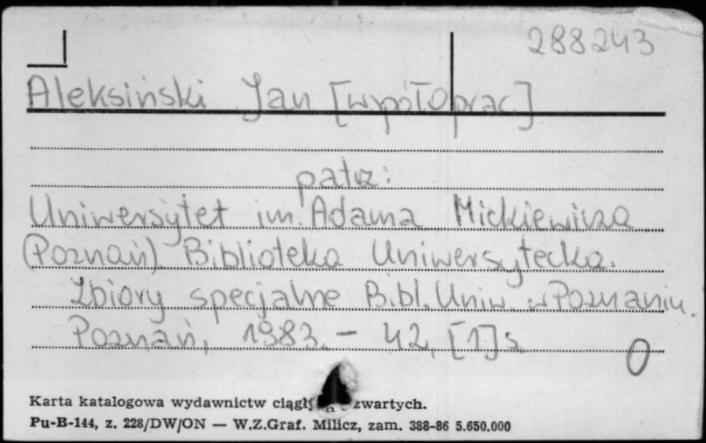 288243
Aleksiński Jan [współoprac.]
patrz:
Uniwersytet im. Adama Mickiewicza
(Poznań) Biblioteka Uniwersytecka.
Zbiory specjalne Bibl. Uniw. w Poznaniu.
Poznań, 1983. - 42, [1] s.
O
Karta katalogowa wydawnictw zwartych.
Pu-B-144, z. 228/DW/ON — W.Z.Graf. Milicz, zam. 388-86 5.650.000